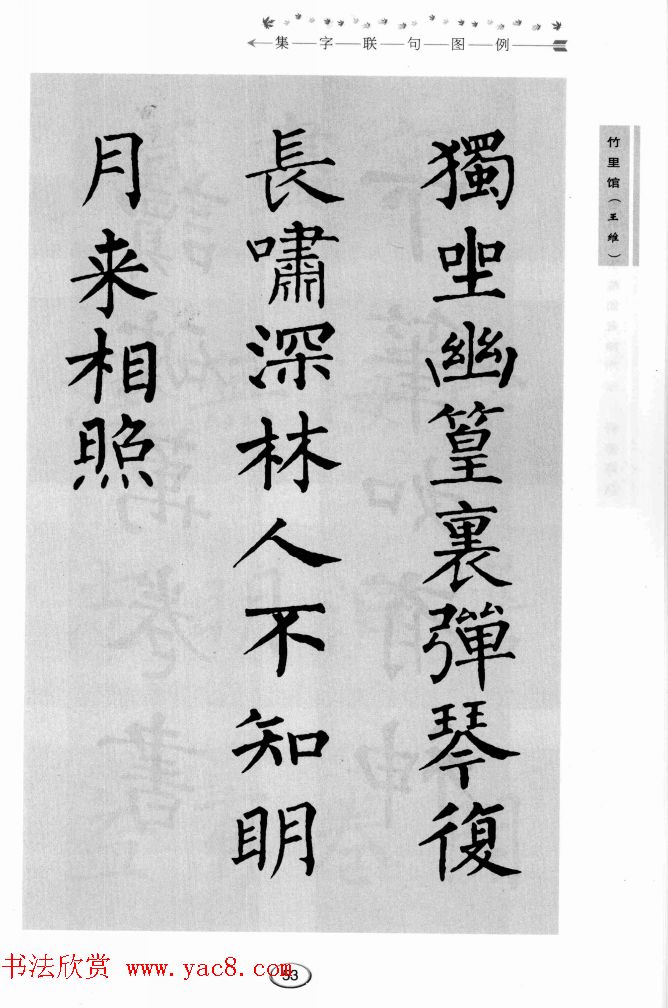 集字联句图例
竹里馆（王维）
獨坐幽篁裏彈琴復
長嘯深林人不知明
月来相照
书法欣赏 www.yac8.com
53